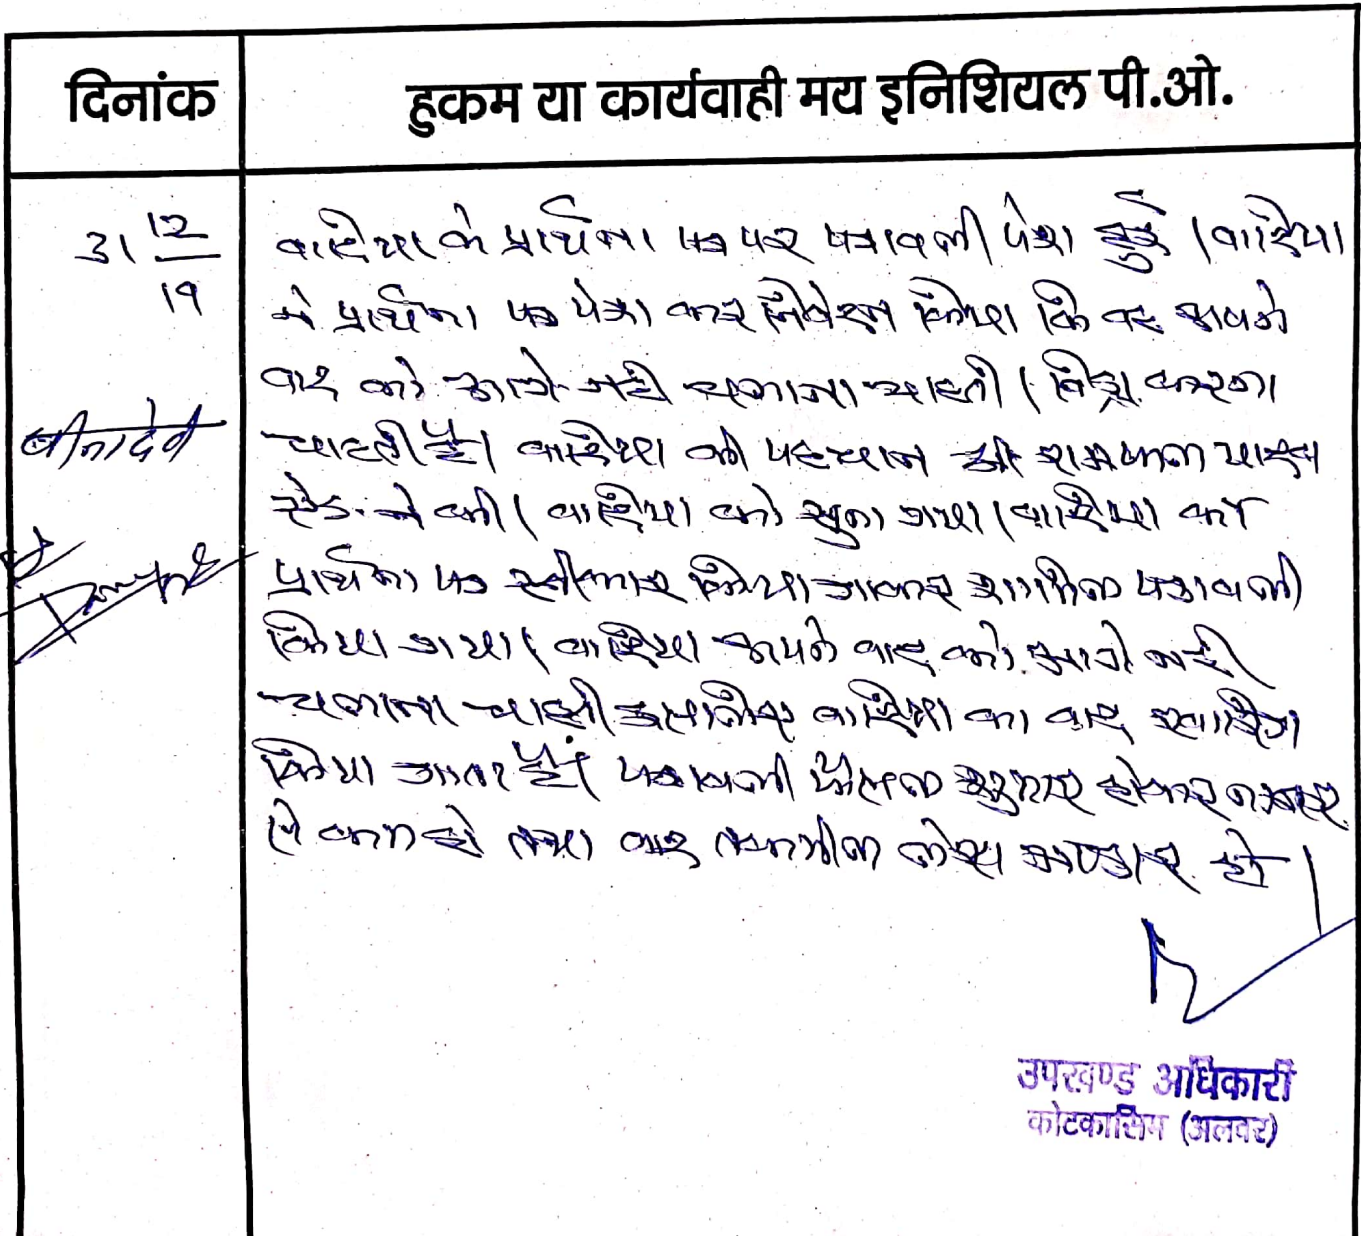 दिनांक
हुकम या कार्यवाही मय इनिशियल पी.ओ.
31 12/19
वादिया के प्रार्थना पत्र पर पत्रावली पेश हुई। वादिया
ने प्रार्थना पत्र पेश कर निवेदन किया कि वह अपने
वाद को आगे नही चलाना चाहती। विड्रा करना
चाहती है। वादिया की पहचान श्री रामपाल यादव
एड. ने की। वादिया को सुना गया। वादिया का
प्रार्थना पत्र स्वीकार किया जाकर शामिल पत्रावली
किया गया। वादिया अपने वाद को आगे नही
चलाना चाहती इसलिए वादिया का वाद खारिज
किया जाता है। पत्रावली फैसल शुमार होकर नम्बर
से कम हो तथा बाद तकमील लेख भण्डार हो।
बीनादेवी
उपखण्ड अधिकारी
कोटकासिम (अलवर)